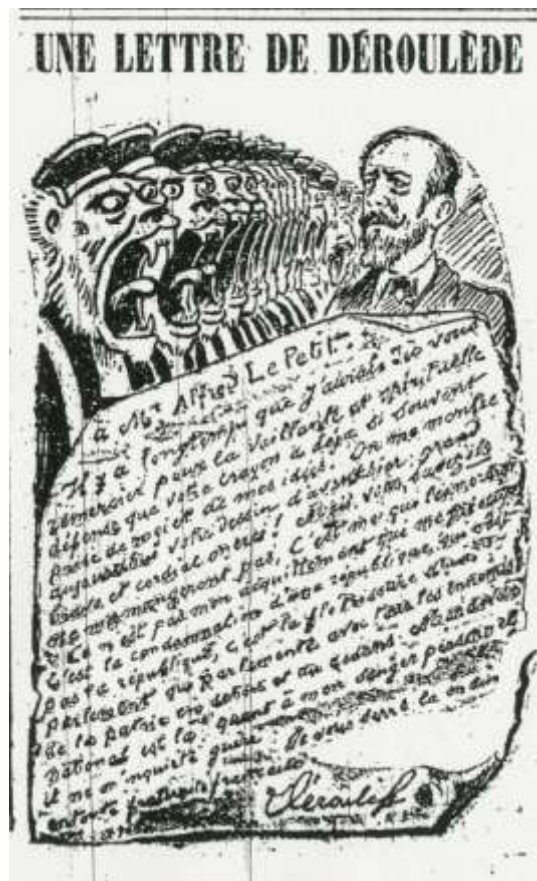 UNE LETTRE DE DÉROULÈDE
à Mr Alfred Le Petit
Il y a longtemps que j'aurais dû vous
remercier pour la vaillante et spirituelle
défense que votre crayon a déjà si souvent
prise de moi et de mes idées. On me montre
aujourd'hui votre dessin d'avant-hier. Grand
merci! Mais, voyez,
ne me mangeront pas, c'est moi qui les
Ce n'est pas mon acquittement que
c'est la condamnation d'une république qui
pas la république, c'est la d'un
parlement qui parlemente avec tous les ennemis
de la patrie du dehors et du dedans.
national est là quant à mon danger personnel
il ne m'inquiète guère. Je vous serre la main
Déroulède